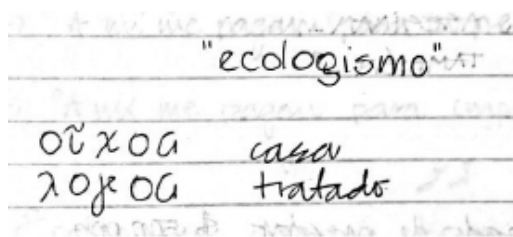 "ecologismo"
οῖχος casa
λογος tratado